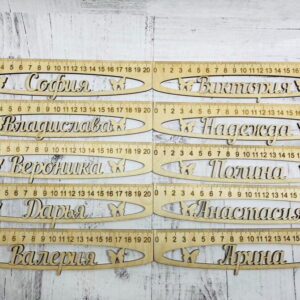 4 5 6 7 8 9 10 11 12 13 14 15 16 17 18 19 20 0 1 2 3 4 5 6 7 8 9 10 11 12 13 14 15 16
София Виктория
5 6 7 8 9 10 11 12 13 14 15 16 17 18 19 20 0 1 2 3 4 5 6 7 8 9 10 11 12 13 14 15
Владислава Надежда
5 6 7 8 9 10 11 12 13 14 15 16 17 18 19 20 0 1 2 3 4 5 6 7 8 9 10 11 12 13 14 15
Вероника Полина
5 6 7 8 9 10 11 12 13 14 15 16 17 18 19 20 0 1 2 3 4 5 6 7 8 9 10 11 12 13 14 15
Дарья Анастасия
4 5 6 7 8 9 10 11 12 13 14 15 16 17 18 19 20 0 1 2 3 4 5 6 7 8 9 10 11 12 13 14 15
Валерия Арина